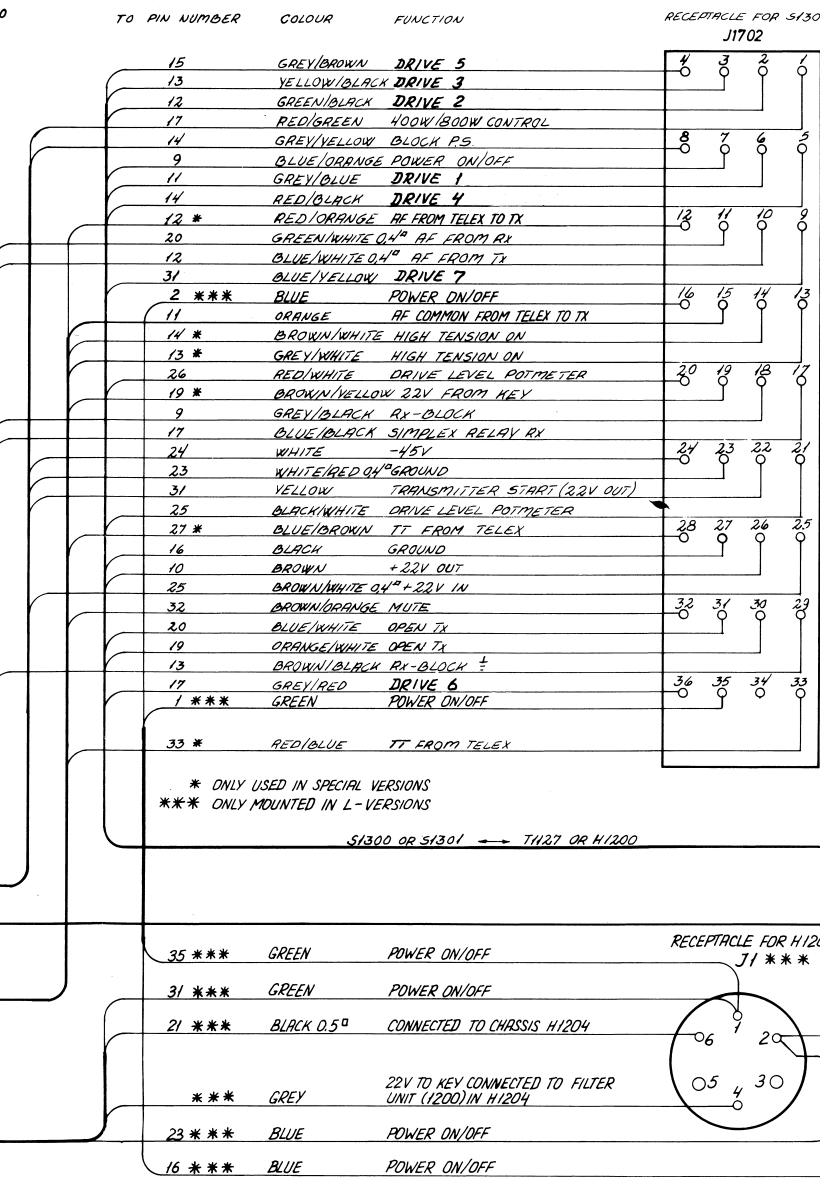 TO PIN NUMBER COLOUR FUNCTION RECEPTACLE FOR S130
J1702
15 GREY/BROWN DRIVE 5
13 YELLOW/BLACK DRIVE 3
12 GREEN/BLACK DRIVE 2
17 RED/GREEN 400W/800W CONTROL
14 GREY/YELLOW BLOCK P.S.
9 BLUE/ORANGE POWER ON/OFF
11 GREY/BLUE DRIVE 1
14 RED/BLACK DRIVE 4
12 * RED/ORANGE AF FROM TELEX TO TX
20 GREEN/WHITE 0,4¤ AF FROM RX
12 BLUE/WHITE 0,4¤ AF FROM TX
31 BLUE/YELLOW DRIVE 7
2 *** BLUE POWER ON/OFF
11 ORANGE AF COMMON FROM TELEX TO TX
14 * BROWN/WHITE HIGH TENSION ON
13 * GREY/WHITE HIGH TENSION ON
26 RED/WHITE DRIVE LEVEL POTMETER
19 * BROWN/YELLOW 22V FROM KEY
9 GREY/BLACK RX-BLOCK
17 BLUE/BLACK SIMPLEX RELAY RX
24 WHITE -45V
23 WHITE/RED 0,4¤ GROUND
31 YELLOW TRANSMITTER START (22V OUT)
25 BLACK/WHITE DRIVE LEVEL POTMETER
27 * BLUE/BROWN TT FROM TELEX
16 BLACK GROUND
10 BROWN +22V OUT
25 BROWN/WHITE 0,4¤ +22V IN
32 BROWN/ORANGE MUTE
20 BLUE/WHITE OPEN TX
19 ORANGE/WHITE OPEN TX
13 BROWN/BLACK RX-BLOCK
17 GREY/RED DRIVE 6
1 *** GREEN POWER ON/OFF
33 * RED/BLUE TT FROM TELEX
4 3 2 1
8 7 6 5
12 11 10 9
16 15 14 13
20 19 18 17
24 23 22 21
28 27 26 25
32 31 30 29
36 35 34 33
* ONLY USED IN SPECIAL VERSIONS
*** ONLY MOUNTED IN L-VERSIONS
S1300 OR S1301 ←→ T1127 OR H1200
RECEPTACLE FOR H120
J1 ***
35 *** GREEN POWER ON/OFF
31 *** GREEN POWER ON/OFF
21 *** BLACK 0.5¤ CONNECTED TO CHASSIS H1204
*** GREY 22V TO KEY CONNECTED TO FILTER
UNIT (1200) IN H1204
23 *** BLUE POWER ON/OFF
16 *** BLUE POWER ON/OFF
1
6 2
5 3
4